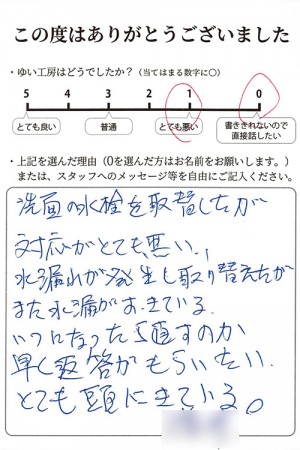 この度はありがとうございました
・ゆい工房はどうでしたか？（当てはまる数字に○）
5 4 3 2 1 0
とても良い 普通 とても悪い 書ききれないので直接話したい
・上記を選んだ理由（0を選んだ方はお名前をお願いします。）
または、スタッフへのメッセージ等を自由にご記入ください。
洗面の水栓を取替したが
対応がとても悪い、
水漏れが発生し取り替えたが
また水漏がおきている。
いつになったら直すのか
早く返答がもらいたい.
とても頭にきている。